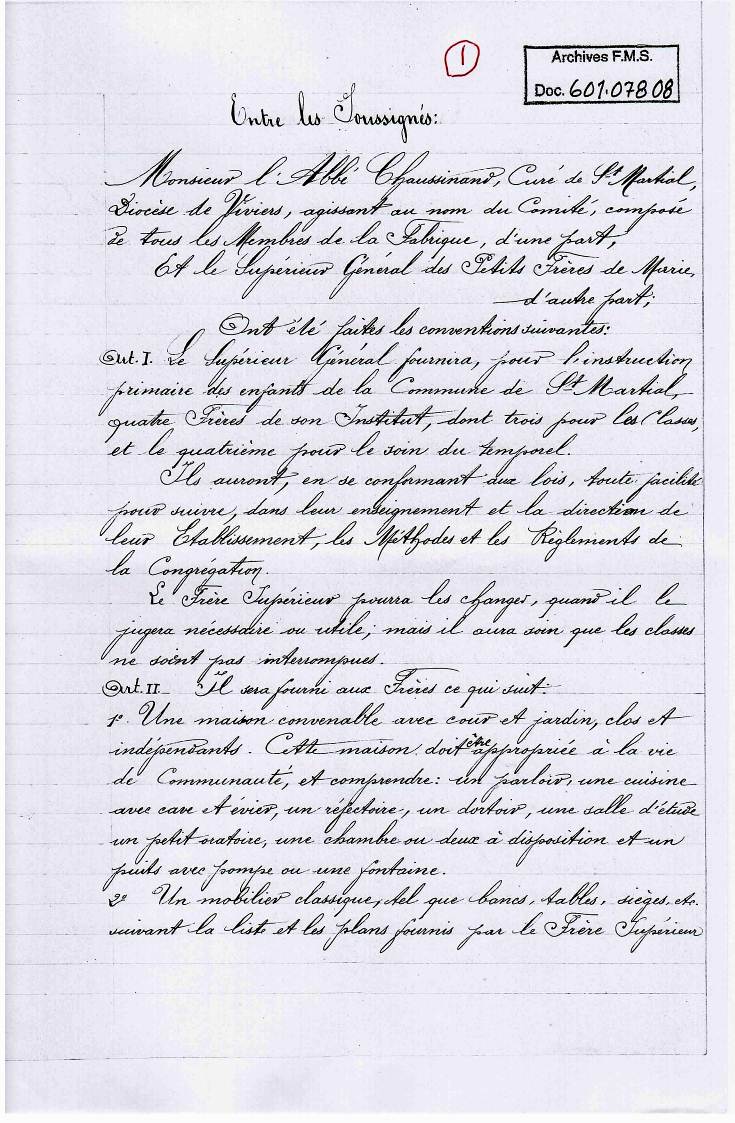 1
Archives F.M.S.
Doc. 601.07808
Entre les Soussignés:
Monsieur l'Abbé Chaussinand, Curé de St Martial,
Diocèse de Viviers, agissant au nom du Comité, composé
de tous les Membres de la Fabrique, d'une part,
Et le Supérieur Général des Petits Frères de Marie,
d'autre part;
Ont été faites les conventions suivantes:
Art. I. Le Supérieur Général fournira, pour l'instruction
primaire des enfants de la Commune de St Martial,
quatre Frères de son Institut, dont trois pour les Classes,
et le quatrième pour le soin du temporel.
Ils auront, en se conformant aux lois, toute facilité
pour suivre, dans leur enseignement et la direction de
leur Etablissement, les Méthodes et les Règlements de
la Congrégation.
Le Frère Supérieur pourra les changer, quand il le
jugera nécessaire ou utile; mais il aura soin que les classes
ne soient pas interrompues.
Art. II. Il sera fourni aux Frères ce qui suit:
1º. Une maison convenable avec cour et jardin, clos et
indépendants. Cette maison doit être appropriée à la vie
de Communauté, et comprendre: un parloir, une cuisine
avec cave et évier, un réfectoire, un dortoir, une salle d'étude
un petit oratoire, une chambre ou deux à disposition et un
puits avec pompe ou une fontaine.
2º Un mobilier classique, tel que bancs, tables, sièges, etc.
suivant la liste et les plans fournis par le Frère Supérieur